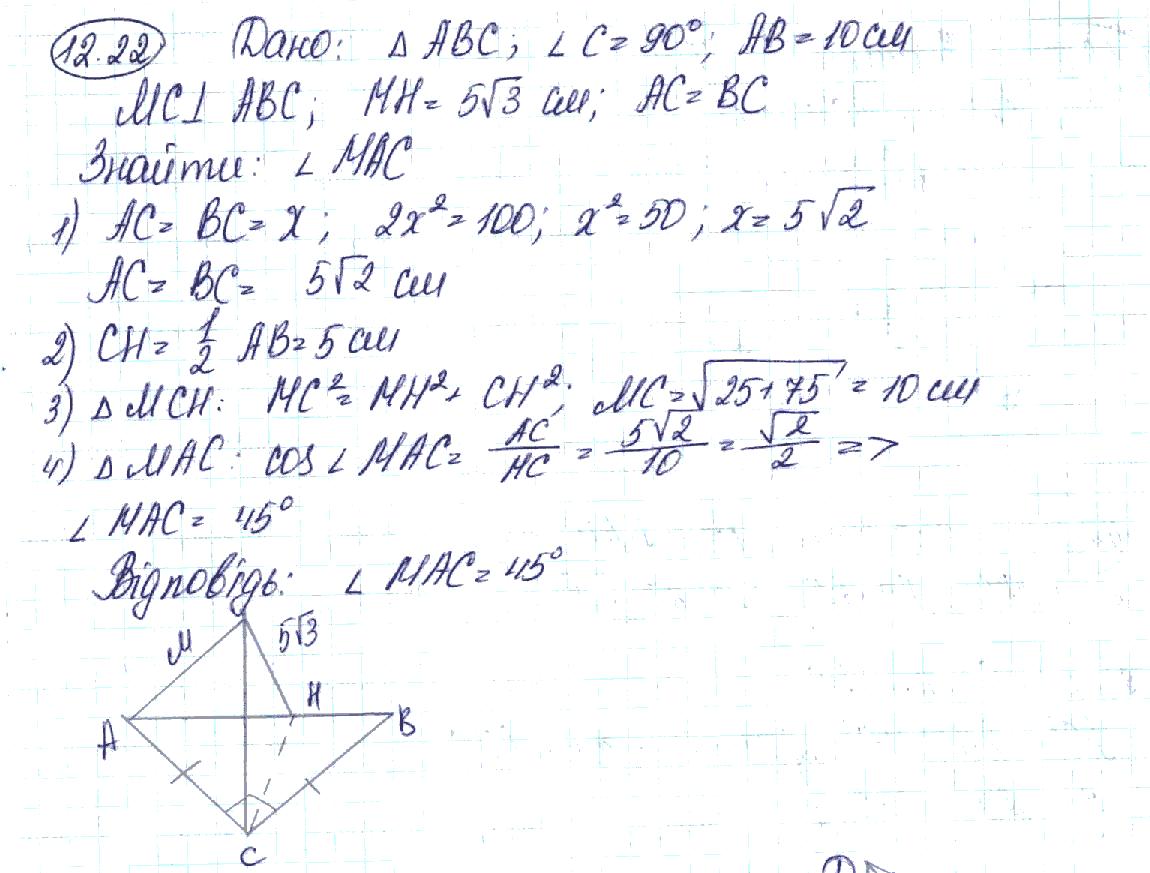 12.22 Дано: Δ ABC; ∠ C = 90°; AB = 10 см
MC⊥ ABC; MH = 5√3 см; AC = BC
Знайти: ∠ MAC
1) AC = BC = x; 2x² = 100; x² = 50; x = 5√2
AC = BC = 5√2 см
2) CH = 1/2 AB = 5 см
3) Δ MCH: MC² = MH² + CH²; MC = √25+75 = 10 см
4) Δ MAC: cos ∠ MAC = AC/MC = 5√2/10 = √2/2 =>
∠ MAC = 45°
Відповідь: ∠ MAC = 45°
M
5√3
H
A
B
C